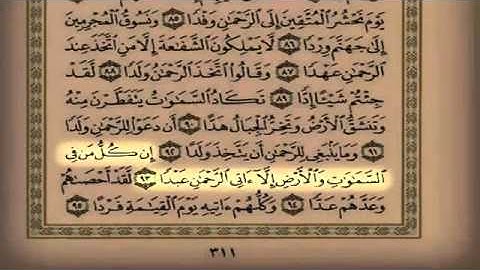 يَوْمَ نَحْشُرُ ٱلْمُتَّقِينَ إِلَى ٱلرَّحْمَٰنِ وَفْدًا ٨٥ وَنَسُوقُ ٱلْمُجْرِمِينَ
إِلَىٰ جَهَنَّمَ وِرْدًا ٨٦ لَّا يَمْلِكُونَ ٱلشَّفَٰعَةَ إِلَّا مَنِ ٱتَّخَذَ عِندَ
ٱلرَّحْمَٰنِ عَهْدًا ٨٧ وَقَالُوا۟ ٱتَّخَذَ ٱلرَّحْمَٰنُ وَلَدًا ٨٨ لَّقَدْ
جِئْتُمْ شَيْـًٔا إِدًّا ٨٩ تَكَادُ ٱلسَّمَٰوَٰتُ يَتَفَطَّرْنَ مِنْهُ
وَتَنشَقُّ ٱلْأَرْضُ وَتَخِرُّ ٱلْجِبَالُ هَدًّا ٩٠ أَن دَعَوْا۟ لِلرَّحْمَٰنِ وَلَدًا
٩١ وَمَا يَنۢبَغِى لِلرَّحْمَٰنِ أَن يَتَّخِذَ وَلَدًا ٩٢ إِن كُلُّ مَن فِى
ٱلسَّمَٰوَٰتِ وَٱلْأَرْضِ إِلَّآ ءَاتِى ٱلرَّحْمَٰنِ عَبْدًا ٩٣ لَّقَدْ أَحْصَىٰهُمْ
وَعَدَّهُمْ عَدًّا ٩٤ وَكُلُّهُمْ ءَاتِيهِ يَوْمَ ٱلْقِيَٰمَةِ فَرْدًا ٩٥
٣١١